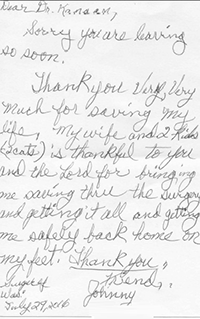 Dear Dr. Kanaan,
Sorry you are leaving
so soon.
Thank you Very, Very
much for saving my
life, My wife and 2 Kids
(2cats) is thankful to you
and the Lord for bringing
me saving thru the surgery
and getting it all and getting
me safely back home on
my feet. Thank you,
Friend,
Johnny
Surgery
Was
July 29, 2016